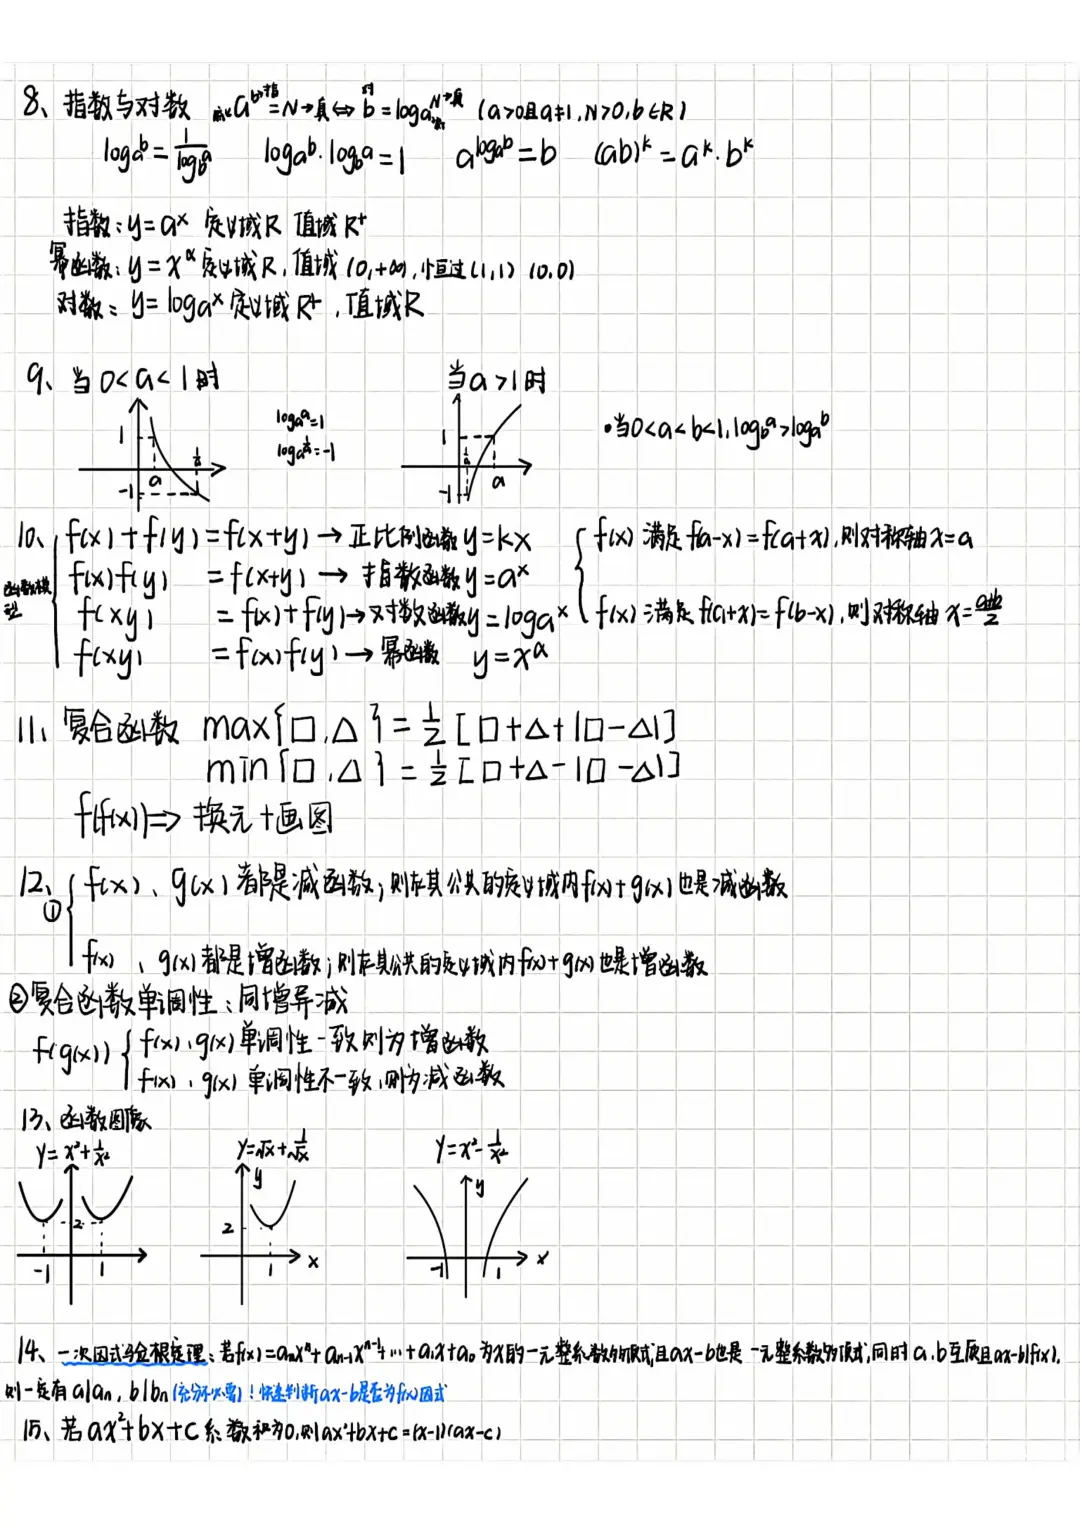 8、指数与对数 底←a^{b→指}=N→真⇔b^{对}=log_{a→底}^{N→真} (a>0且a≠1,N>0,b∈R)
log_a^b=1/log_b^a log_a^b·log_b^a=1 a^{log_a^b}=b (ab)^k=a^k·b^k
指数:y=a^x 定义域R 值域R⁺
幂函数:y=x^α定义域R,值域(0,+∞),恒过(1,1)(0,0)
对数:y=log_a^x定义域R⁺,值域R
9、当0<a<1时
当a>1时
log_a^a=1
log_a^{1/a}=-1
•当0<a<b<1,log_b^a>log_a^b
1
a
1/a
-1
1
1/a
a
-1
10、函数模型
f(x)+f(y)=f(x+y)→正比例函数y=kx
f(x)f(y)=f(x+y)→指数函数y=a^x
f(xy)=f(x)+f(y)→对数函数y=log_a^x
f(xy)=f(x)f(y)→幂函数 y=x^α
f(x)满足f(a-x)=f(a+x),则对称轴x=a
f(x)满足f(a+x)=f(b-x),则对称轴x=(a+b)/2
11、复合函数 max{□,△}=1/2[□+△+|□-△|]
min{□,△}=1/2[□+△-|□-△|]
f(f(x))⇒换元+画图
12、①f(x)、g(x)都是减函数;则在其公共的定义域内f(x)+g(x)也是减函数
f(x)、g(x)都是增函数;则在其公共的定义域内f(x)+g(x)也是增函数
②复合函数单调性:同增异减
f(g(x)) { f(x),g(x)单调性一致则为增函数
f(x),g(x)单调性不一致,则为减函数
13、函数图象
y=x²+1/x² y=√x+1/√x y=x²-1/x²
2
-1 1
y
2
1 x
y
-1 1 x
14、一次因式与金根定理:若f(x)=aₙxⁿ+aₙ₋₁xⁿ⁻¹+…+a₁x+a₀为x的一元整系数多项式,且ax-b也是一元整系数多项式,同时a,b互质且ax-b|f(x),
则一定有a|aₙ,b|bₙ(充分不必要)!快速判断ax-b是否为f(x)因式
15、若ax²+bx+c系数和为0,则ax²+bx+c=(x-1)(ax-c)